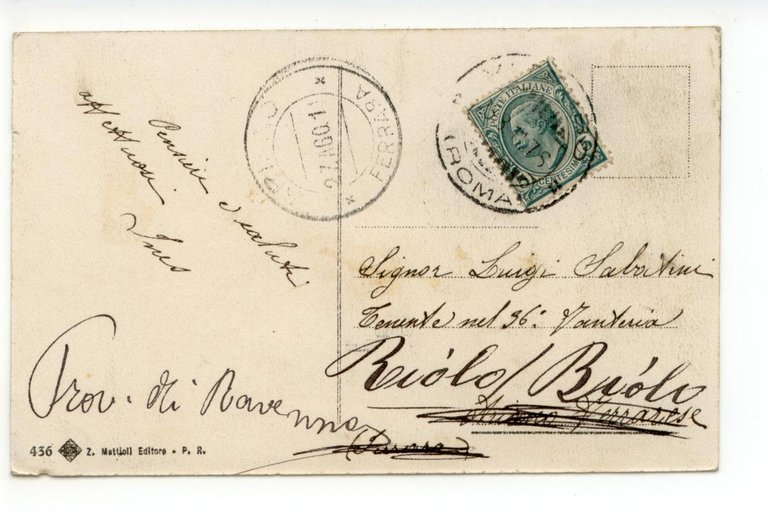 Pensieri e saluti
affettuosi
Ines
FERRARA
(ROMA)
POSTE ITALIANE
CENTESIMI
Signor Luigi Sabatini
Tenente nel 36° Fanteria
Riólo / Riólo
Ferrarese
Prov. di Ravenna
436 Z. Mattioli Editore - P. R.